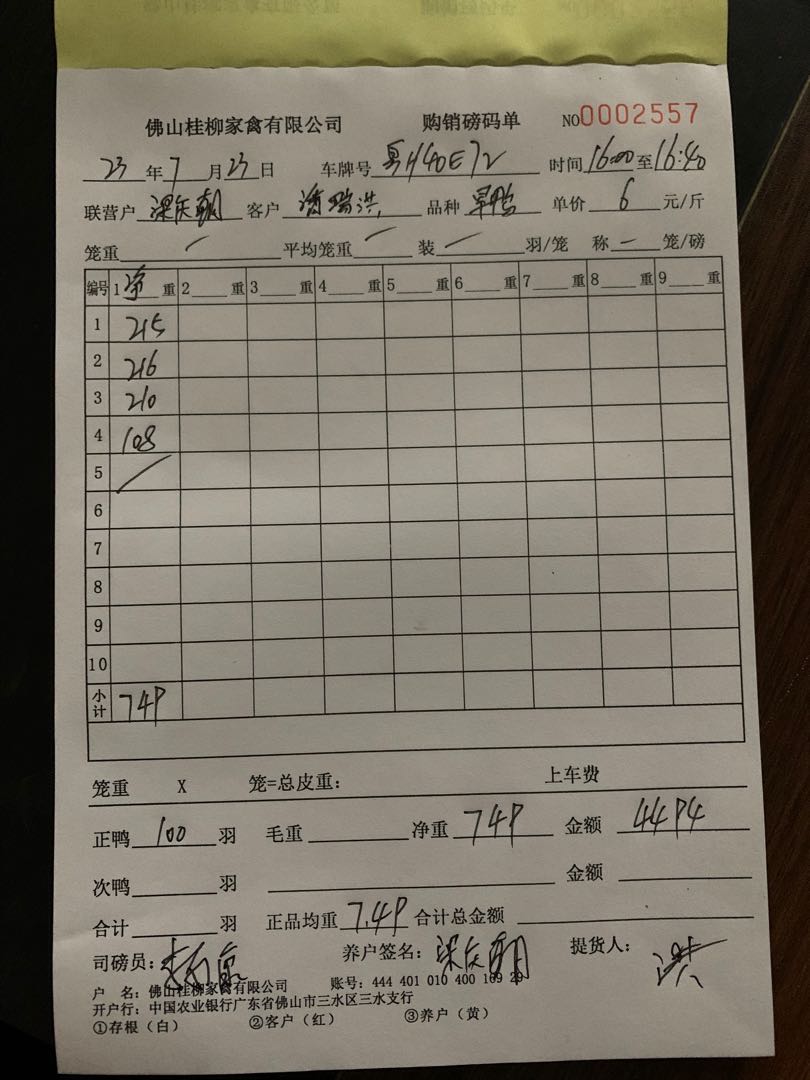 佛山桂柳家禽有限公司 购销磅码单 NO0002557
23年7月23日 车牌号 粤H40E72 时间16:00至16:40
联营户 梁庆朝 客户 潘瑞洪 品种 旱鸭 单价 6 元/斤
笼重 / 平均笼重 / 装 / 羽/笼 称 — 笼/磅
编号 1净重 2 重 3 重 4 重 5 重 6 重 7 重 8 重 9 重
1 215
2 216
3 210
4 108
5 /
6
7
8
9
10
小计 749
笼重 X 笼=总皮重: 上车费
正鸭 100 羽 毛重 净重 749 金额 4494
次鸭 羽 金额
合计 羽 正品均重 7.49 合计总金额
司磅员: 养户签名: 梁庆朝 提货人: 洪
户 名: 佛山桂柳家禽有限公司 账号: 444 401 010 400 169 29
开户行: 中国农业银行广东省佛山市三水区三水支行
①存根(白) ②客户(红) ③养户(黄)